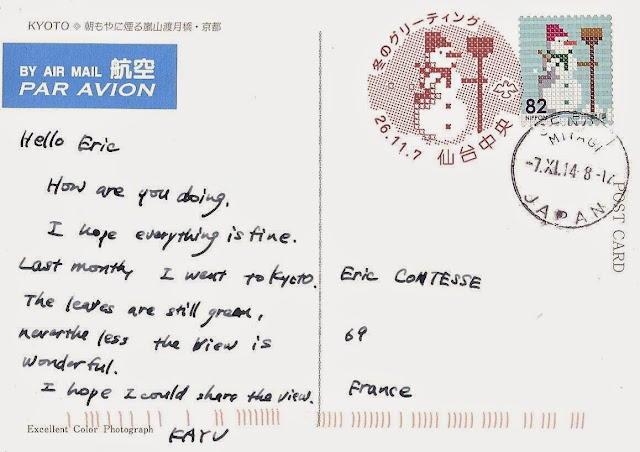 KYOTO ※ 朝もやに煙る嵐山渡月橋・京都
BY AIR MAIL 航空
PAR AVION
Hello Eric
How are you doing.
I hope everything is fine.
Last month, I went to Kyoto.
The leaves are still green,
neverthe less the view is
wonderful.
I hope I could share the view.
KAYU
Excellent Color Photograph
冬のグリーティング
26.11.7
仙台中央
82
NIPPON
MIYAGI
-7.XI.14 8-12
JAPAN
POST CARD
Eric COMTESSE
69
France